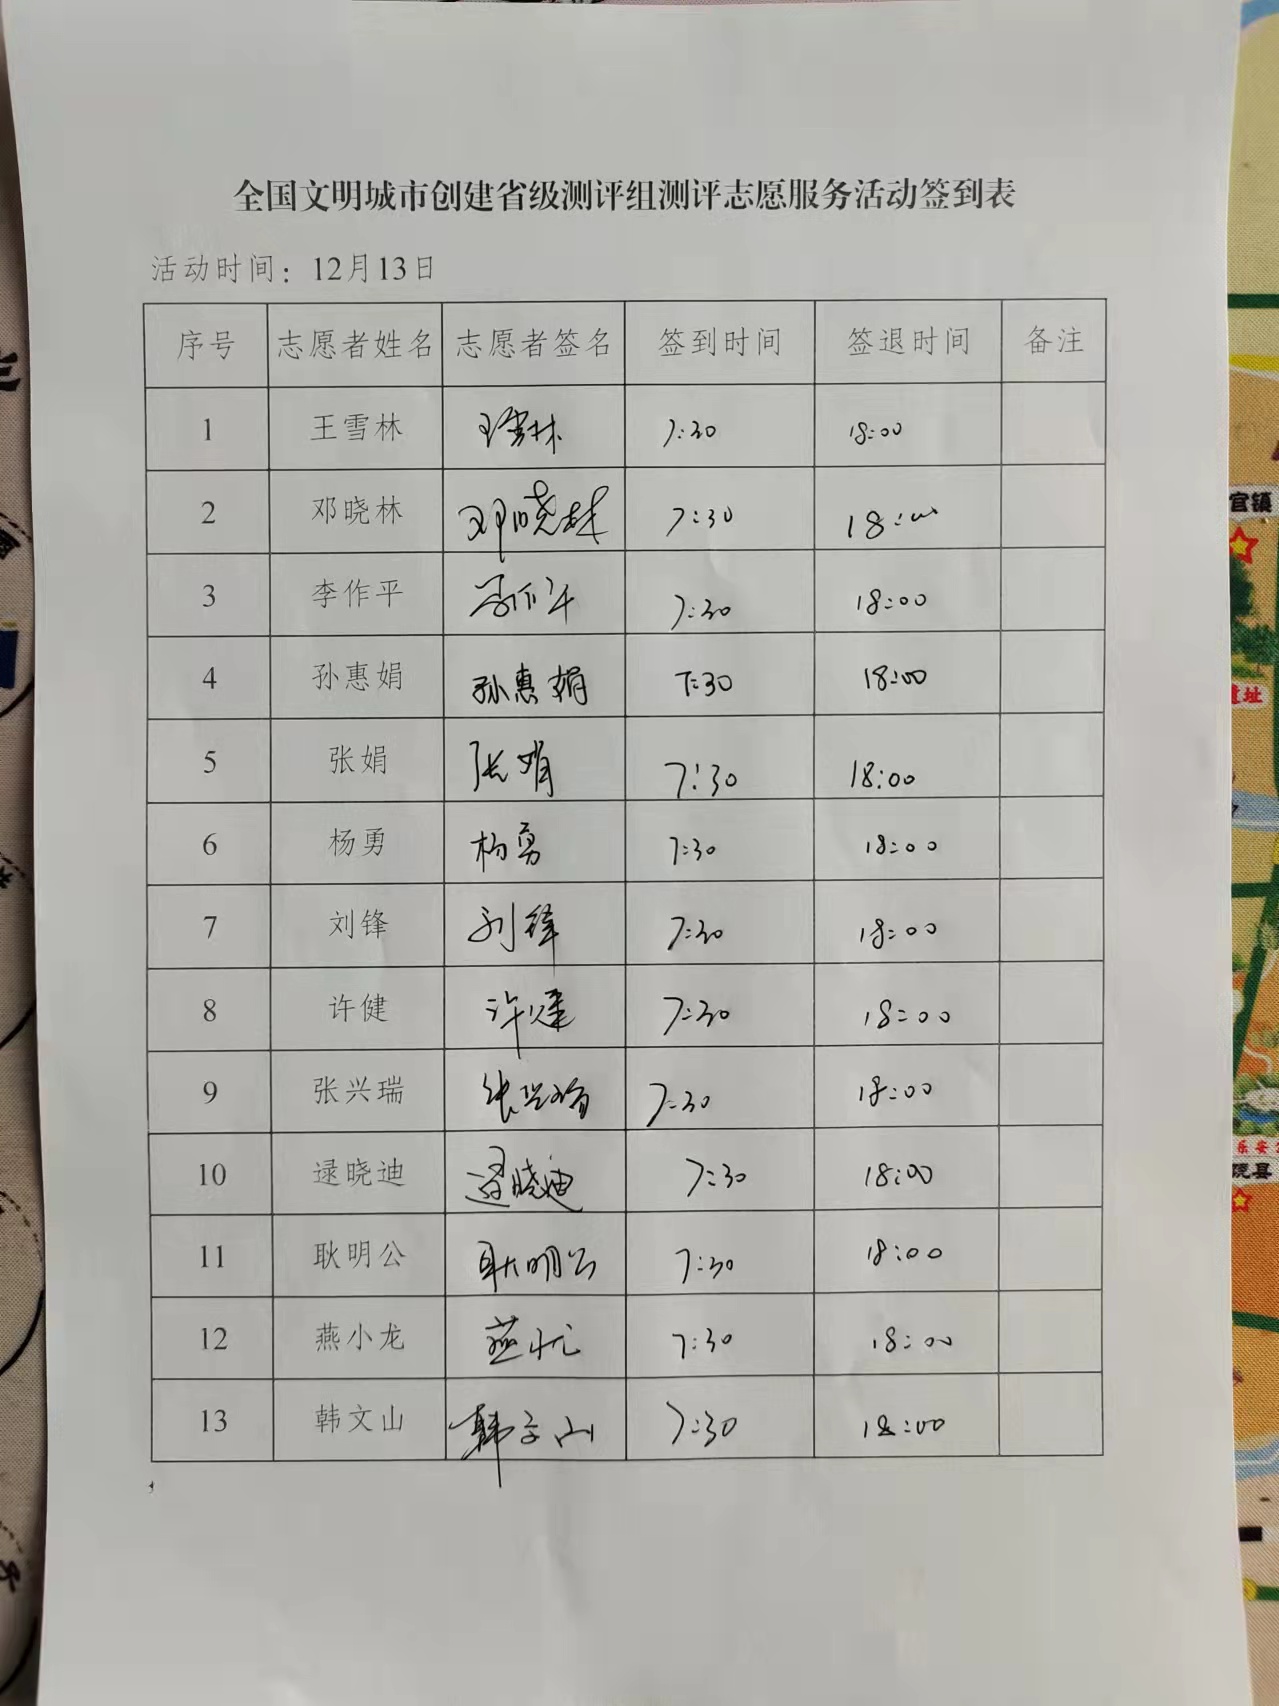 全国文明城市创建省级测评组测评志愿服务活动签到表
活动时间：12月13日
序号 志愿者姓名 志愿者签名 签到时间 签退时间 备注
1 王雪林 王雪林 7:30 18:00
2 邓晓林 邓晓林 7:30 18:00
3 李作平 李作平 7:30 18:00
4 孙惠娟 孙惠娟 7:30 18:00
5 张娟 张娟 7:30 18:00
6 杨勇 杨勇 7:30 18:00
7 刘锋 刘锋 7:30 18:00
8 许健 许健 7:30 18:00
9 张兴瑞 张兴瑞 7:30 18:00
10 逯晓迪 逯晓迪 7:30 18:00
11 耿明公 耿明公 7:30 18:00
12 燕小龙 燕小龙 7:30 18:00
13 韩文山 韩文山 7:30 18:00
官镇
遗址
乐安
院县